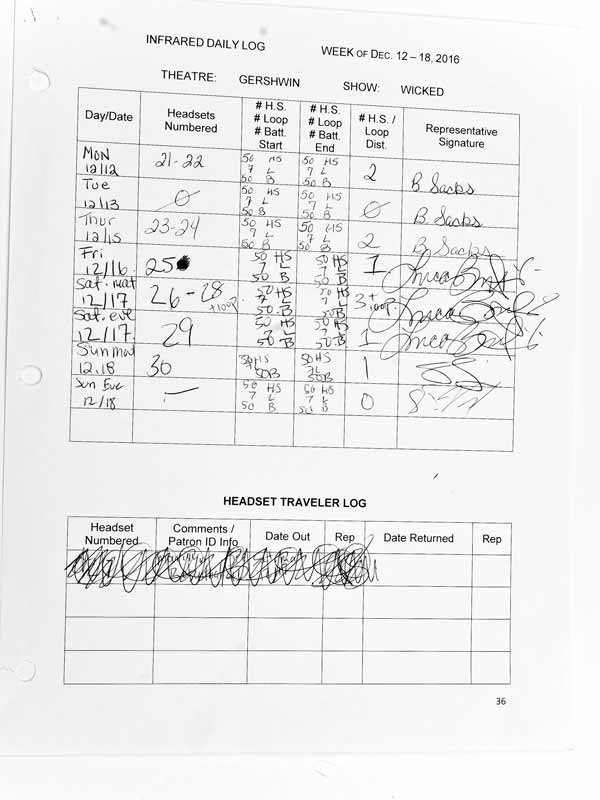 INFRARED DAILY LOG WEEK OF DEC. 12 – 18, 2016
THEATRE: GERSHWIN SHOW: WICKED
Day/Date Headsets Numbered # H.S. # Loop # Batt. Start # H.S. # Loop # Batt. End # H.S. / Loop Dist. Representative Signature
MON 12/12 21-22 50 HS 7 L 50 B 50 HS 7 L 50 B 2 B. Sacks
Tue 12/13 0 50 HS 7 L 50 B 50 HS 7 L 50 B 0 B. Sacks
Thur 12/15 23-24 50 HS 7 L 50 B 50 HS 7 L 50 B 2 B. Sacks
Fri 12/16 25 50 HS 7 L 50 B 50 HS 7 L 50 B 1
Sat. mat 12/17 26-28 +loop 50 HS 7 L 50 B 50 HS 7 L 50 B 3+ loop
Sat. eve 12/17 29 50 HS 7 L 50 B 50 HS 7 L 50 B 1
Sun mat 12.18 30 50 HS 7L 50B 50 HS 7L 50B 1
Sun Eve 12/18 — 50 HS 7 L 50 B 50 HS 7 L 50 B 0
HEADSET TRAVELER LOG
Headset Numbered Comments / Patron ID Info Date Out Rep Date Returned Rep
36